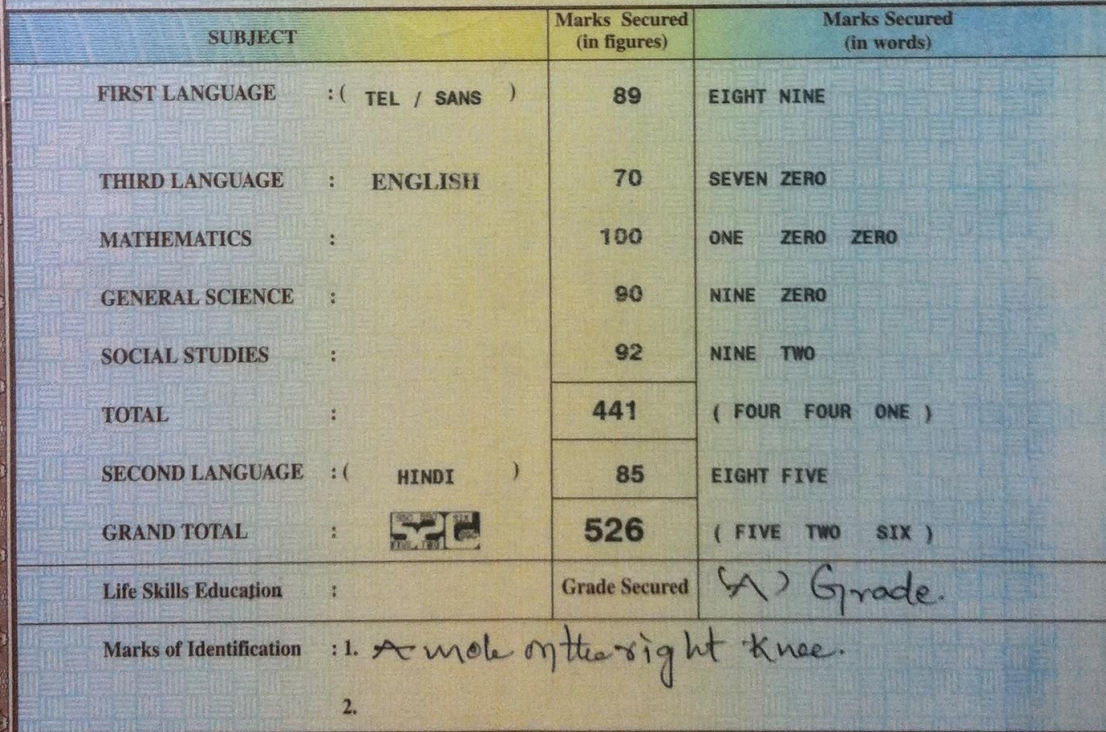 SUBJECT Marks Secured (in figures) Marks Secured (in words)
FIRST LANGUAGE :( TEL / SANS ) 89 EIGHT NINE
THIRD LANGUAGE : ENGLISH 70 SEVEN ZERO
MATHEMATICS : 100 ONE ZERO ZERO
GENERAL SCIENCE : 90 NINE ZERO
SOCIAL STUDIES : 92 NINE TWO
TOTAL : 441 ( FOUR FOUR ONE )
SECOND LANGUAGE :( HINDI ) 85 EIGHT FIVE
GRAND TOTAL : 526 ( FIVE TWO SIX )
Life Skills Education : Grade Secured (A) Grade.
Marks of Identification : 1. A mole on the right Knee.
2.